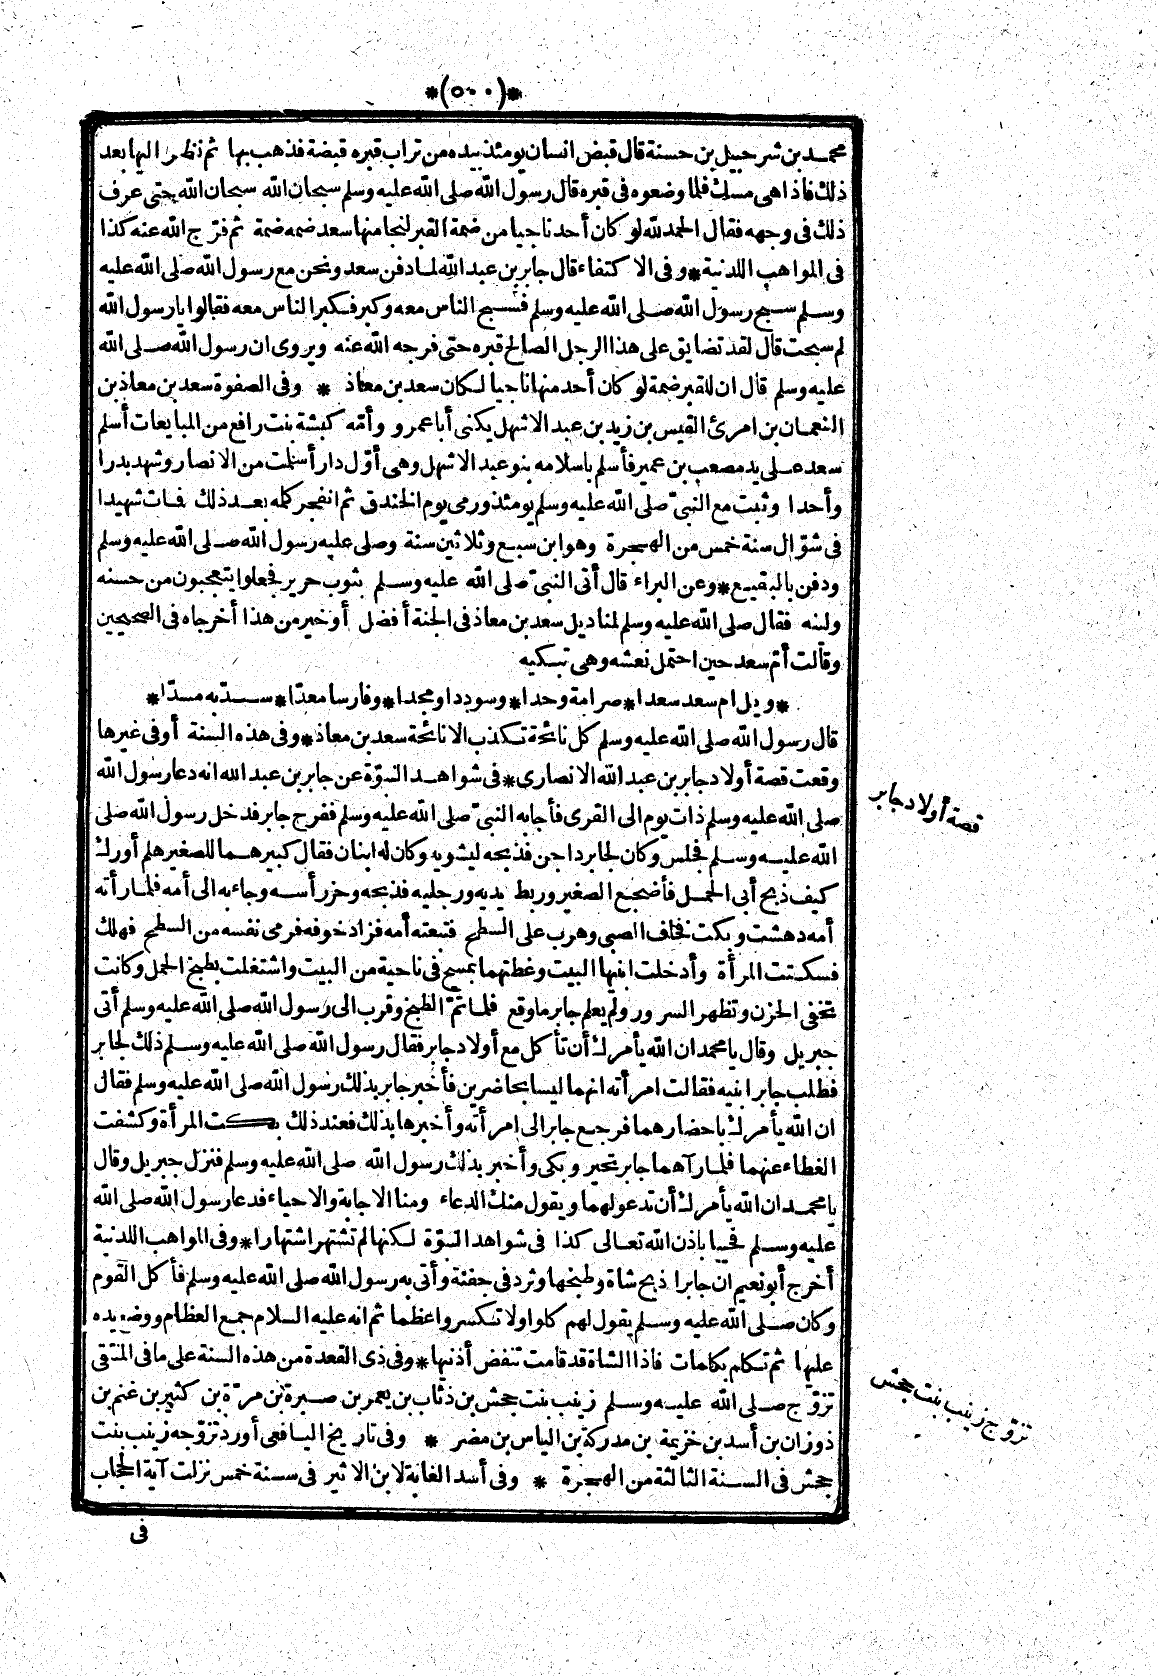 *(٥٠٠)*
محمد بن شرحبيل بن حسنة قال قبض انسان يومئذ بيده من تراب قبره قبضة فذهب بها ثم نظر اليها بعد
ذلك فاذا هى مسك فلما وضعوه فى قبره قال رسول الله صلى الله عليه وسلم سبحان الله سبحان الله حتى عرف
ذلك فى وجهه فقال الحمد لله لو كان أحد ناجيا من ضمة القبر لنجا منها سعد ضمه ضمة ثم فرّج الله عنه كذا
فى المواهب اللدنية * وفى الاكتفاء قال جابر بن عبد الله لما دفن سعد ونحن مع رسول الله صلى الله عليه
وسلم سبح رسول الله صلى الله عليه وسلم فسبح الناس معه وكبر فكبر الناس معه فقالوا يا رسول الله
لم سبحت قال لقد تضايق على هذا الرجل الصالح قبره حتى فرجه الله عنه ويروى ان رسول الله صلى الله
عليه وسلم قال ان للقبر ضمة لو كان أحد منها ناجيا لكان سعد بن معاذ * وفى الصفوة سعد بن معاذ بن
النعمان بن امرئ القيس بن زيد بن عبد الاشهل يكنى أبا عمرو وأمّه كبشة بنت رافع من المبايعات أسلم
سعد على يد مصعب بن عمير فأسلم باسلامه بنو عبد الاشهل وهى أوّل دار أسلمت من الانصار وشهد بدرا
وأحدا وثبت مع النبىّ صلى الله عليه وسلم يومئذ ورمى يوم الخندق ثم انفجر كلمه بعد ذلك فمات شهيدا
فى شوّال سنة خمس من الهجرة وهو ابن سبع وثلاثين سنة وصلى عليه رسول الله صلى الله عليه وسلم
ودفن بالبقيع * وعن البراء قال أتى النبىّ صلى الله عليه وسلم بثوب حرير فجعلوا يتعجبون من حسنه
ولينه فقال صلى الله عليه وسلم لمناديل سعد بن معاذ فى الجنة أفضل أو خير من هذا أخرجاه فى الصحيحين
وقالت أمّ سعد حين احتمل نعشه وهى تبكيه
* ويل ام سعد سعدا * صرامة وحدا * وسوددا ومجدا * وفارسا معدّا * سدّ به مسدّا *
قال رسول الله صلى الله عليه وسلم كل نائحة تكذب الا نائحة سعد بن معاذ * وفى هذه السنة أو فى غيرها
وقعت قصة أولاد جابر بن عبد الله الانصارى * فى شواهد النبوّة عن جابر بن عبد الله انه دعا رسول الله
صلى الله عليه وسلم ذات يوم الى القرى فأجابه النبىّ صلى الله عليه وسلم ففرح جابر فدخل رسول الله صلى
الله عليه وسلم فجلس وكان لجابر داجن فذبحه ليشويه وكان له ابنان فقال كبيرهما للصغير هلم أورك
كيف ذبح أبى الحمل فأضجع الصغير وربط يديه ورجليه فذبحه وحز رأسه وجاء به الى أمه فلما رأته
أمه دهشت وبكت فخاف الصبى وهرب على السطح فتبعته أمه فزاد خوفه فرمى نفسه من السطح فهلك
فسكتت المرأة وأدخلت ابنيها البيت وغطتهما بمسح فى ناحية من البيت واشتغلت بطبخ الحمل وكانت
تخفى الحزن وتظهر السرور ولم يعلم جابر ما وقع فلما تمّ الطبخ وقرب الى رسول الله صلى الله عليه وسلم أتى
جبريل وقال يا محمد ان الله يأمرك أن تأكل مع أولاد جابر فقال رسول الله صلى الله عليه وسلم ذلك لجابر
فطلب جابر ابنيه فقالت امرأته انهما ليسا بحاضرين فأخبر جابر بذلك رسول الله صلى الله عليه وسلم فقال
ان الله يأمرك باحضارهما فرجع جابر الى امرأته وأخبرها بذلك فعند ذلك بكت المرأة وكشفت
الغطاء عنهما فلما رآهما جابر تحير وبكى وأخبر بذلك رسول الله صلى الله عليه وسلم فنزل جبريل وقال
يا محمد ان الله يأمرك أن تدعو لهما ويقول منك الدعاء ومنا الاجابة والاحياء فدعا رسول الله صلى الله
عليه وسلم فحييا باذن الله تعالى كذا فى شواهد النبوّة لكنها لم تشتهر اشتهارا * وفى المواهب اللدنية
أخرج أبو نعيم ان جابرا ذبح شاة وطبخها وثرد فى جفنة وأتى به رسول الله صلى الله عليه وسلم فأكل القوم
وكان صلى الله عليه وسلم يقول لهم كلوا ولا تكسروا عظما ثم انه عليه السلام جمع العظام ووضع يده
عليها ثم تكلم بكلمات فاذا الشاة قد قامت تنفض أذنيها * وفى ذى القعدة من هذه السنة على ما فى المنتقى
تزوّج صلى الله عليه وسلم زينب بنت جحش بن ذئاب بن يعمر بن صبرة بن مرّة بن كثير بن غنم بن
ذوزان بن أسد بن خزيمة بن مدركة بن الياس بن مضر * وفى تاريخ اليافعى أورد تزوّجه زينب بنت
جحش فى السنة الثالثة من الهجرة * وفى أسد الغابة لابن الاثير فى سنة خمس نزلت آية الحجاب
فى
قصة أولاد جابر
تزوّج زينب بنت جحش